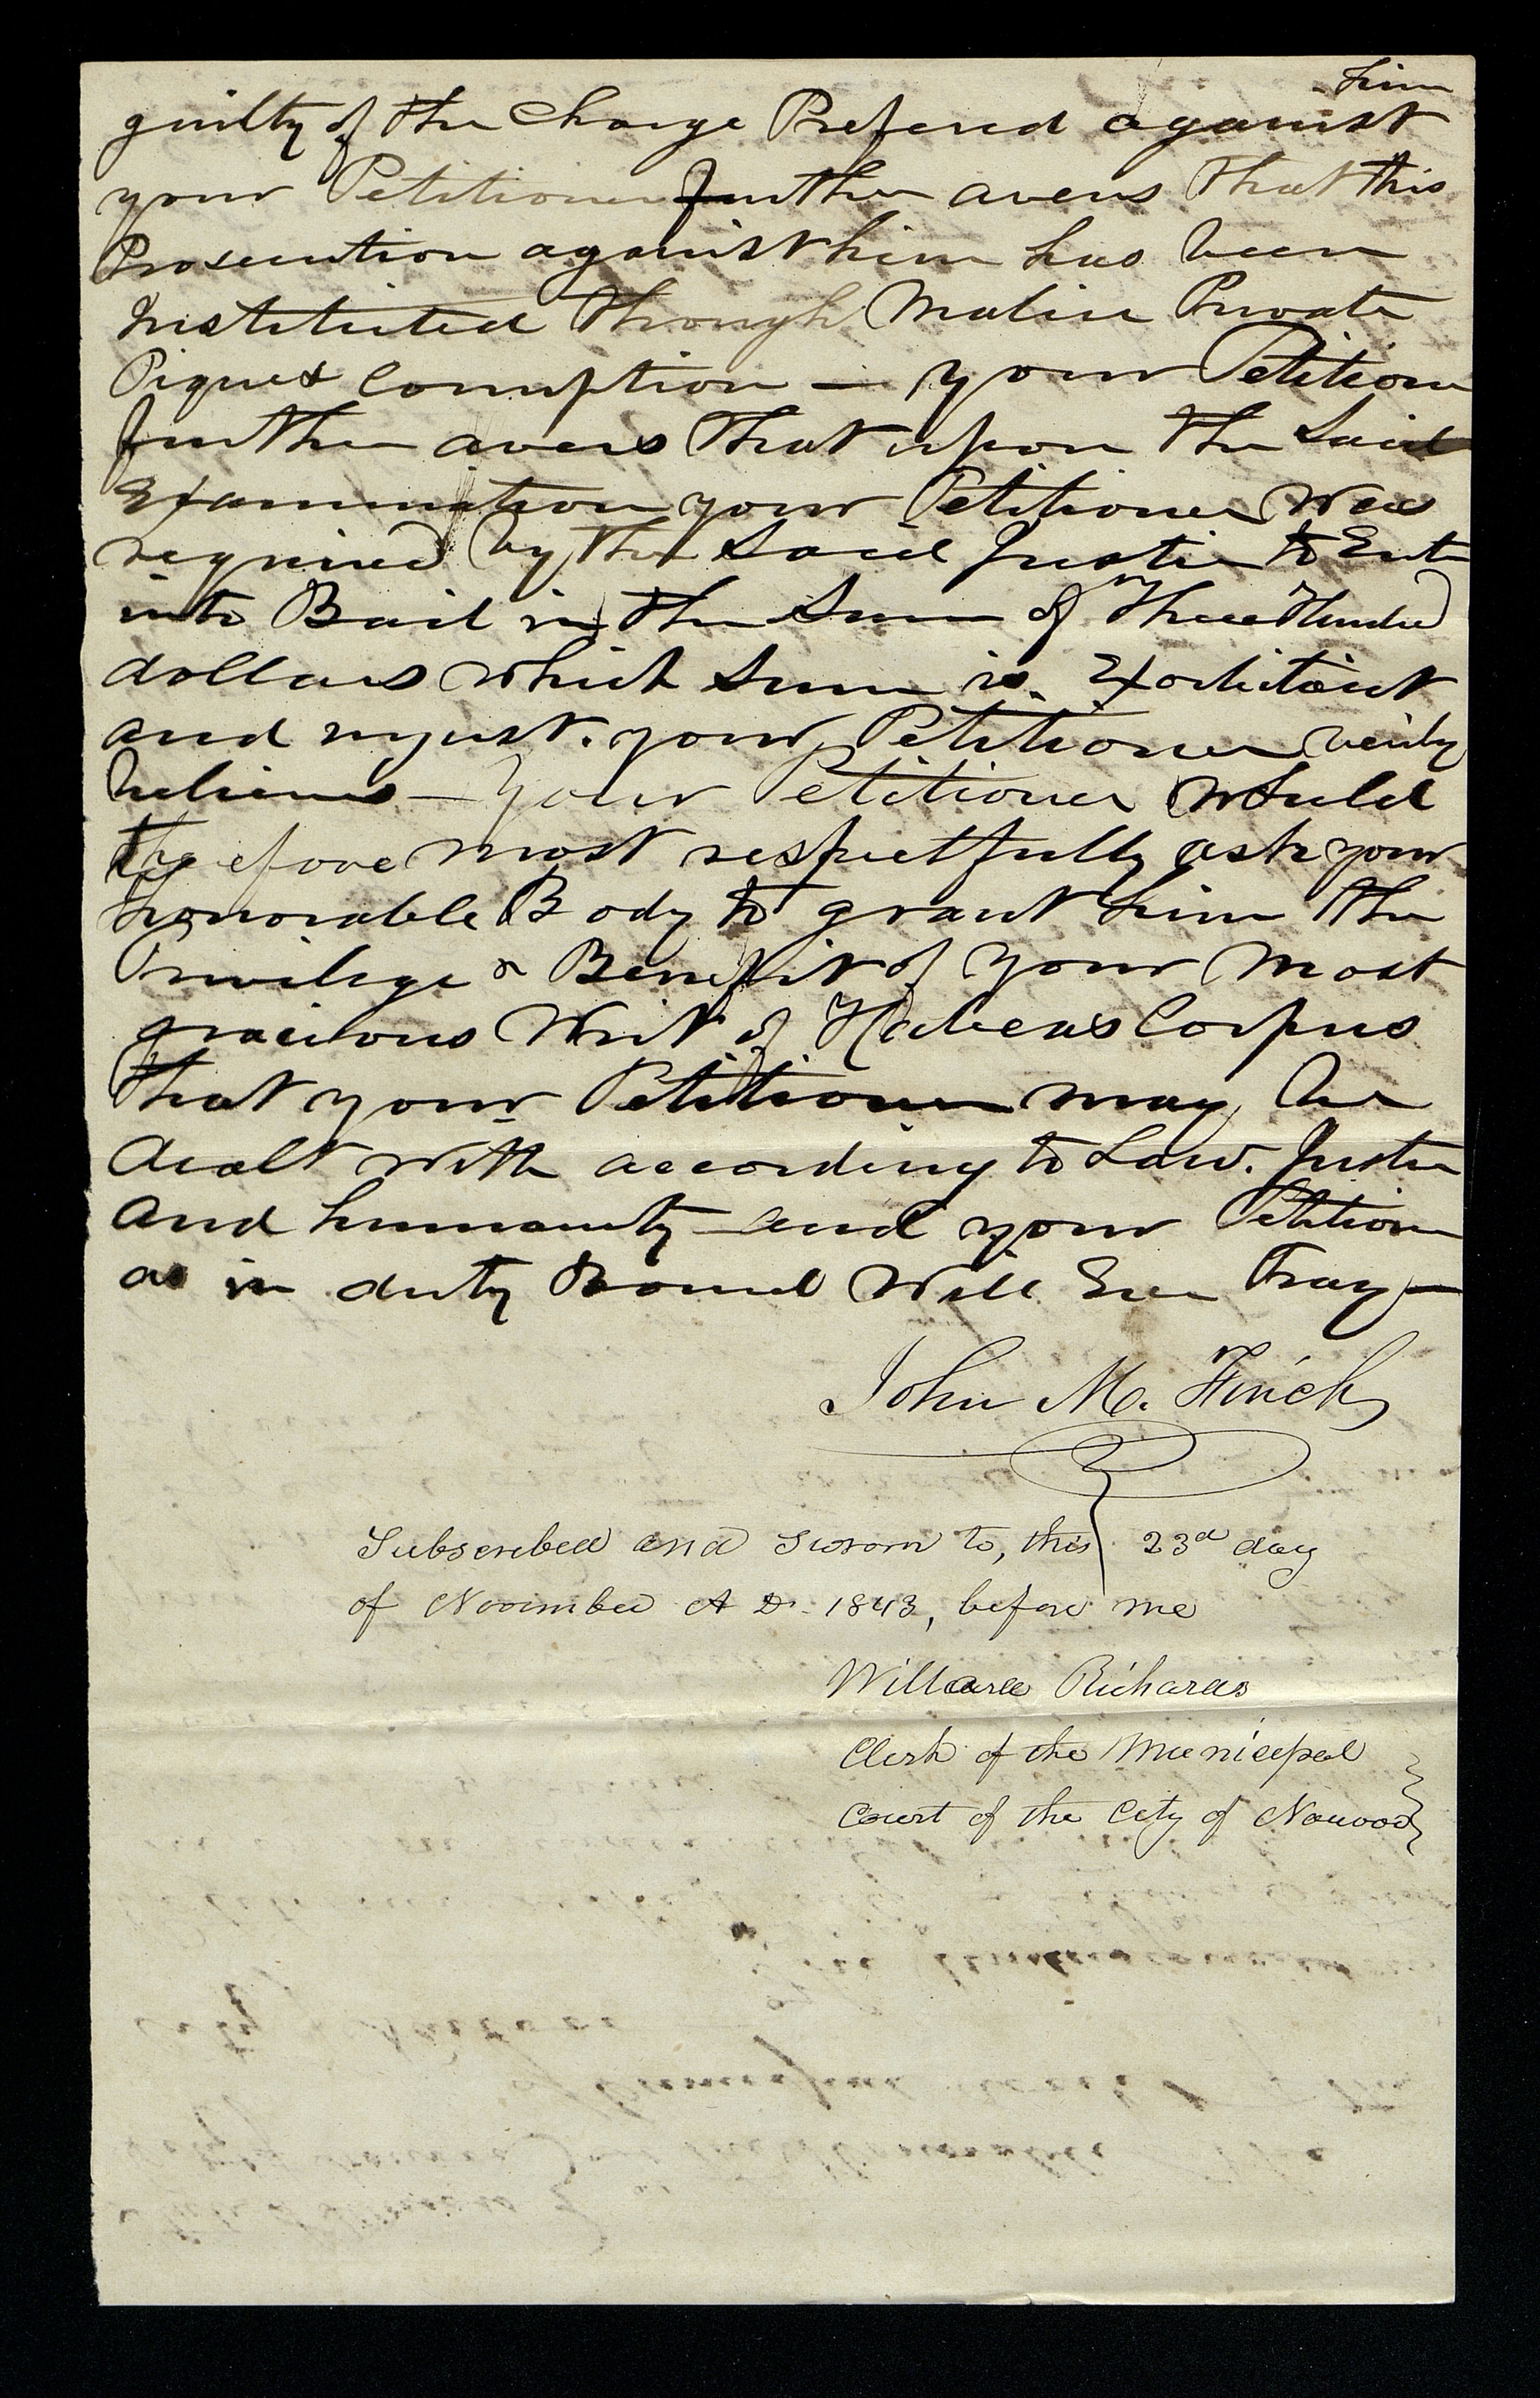 him
guilty of the Charge Prefered against
your Petitioner further avers that this
Prosecution against him has been
Instituted through Malice Private
Pique & Corruption — your Petitioner
further avers that upon the Said
Examination your Petitioner was
required by the Said Justice to Enter
into Bail in the Sum of Three Hundred
dollars which Sum is Exorbitant
and unjust. your Petitioner verily
believes — Your Petitioner Would
therefore most respectfully ask your
honorable Body to grant him the
Privilege & Benefit of your most
gracious Writ of Habeas Corpus
that your Petitioner may be
dealt with according to Law. Justice
and humanity and your Petitioner
as in duty Bound Will Ever Pray —
John M. Finch
Subscribed and sworn to, this 23d day
of November A D. 1843, before me
Willard Richards
Clerk of the Municipal
Court of the City of Nauvoo